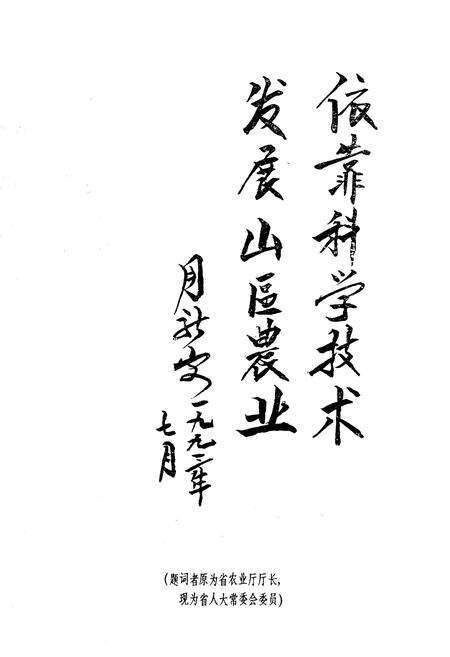 依靠科学技术
发展山區農业
一九九二年
七月
(题词者原为省农业厅厅长,
现为省人大常委会委员)